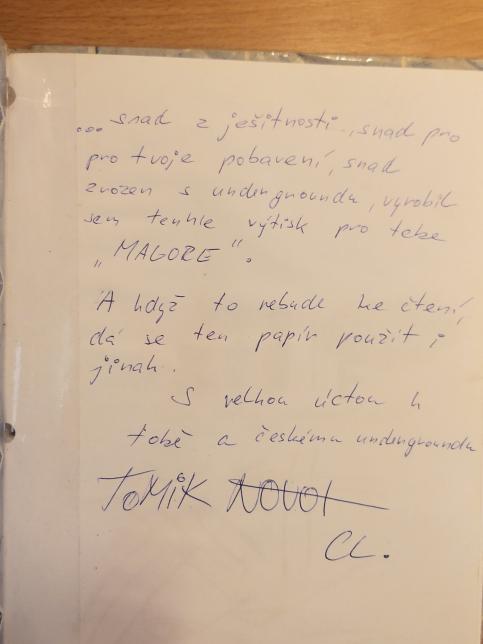 ... snad z ješitnosti, snad pro
pro tvoje pobavení, snad
zrozen s undergroundu, vyrobil
sem tenhle výtisk pro tebe
„MAGORE".
A když to nebude ke čtení,
dá se ten papír použít i
jinak.
S velkou úctou k
tobě a českému undergroundu
TOMÍK
CL.